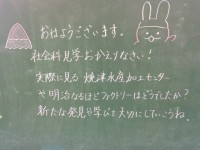 おはようございます。
社会科見学おかえりなさい！
実際に見る焼津水産加工センター
や明治なるほどファクトリーはどうでしたか？
新たな発見や学びを大切にしていこうね。